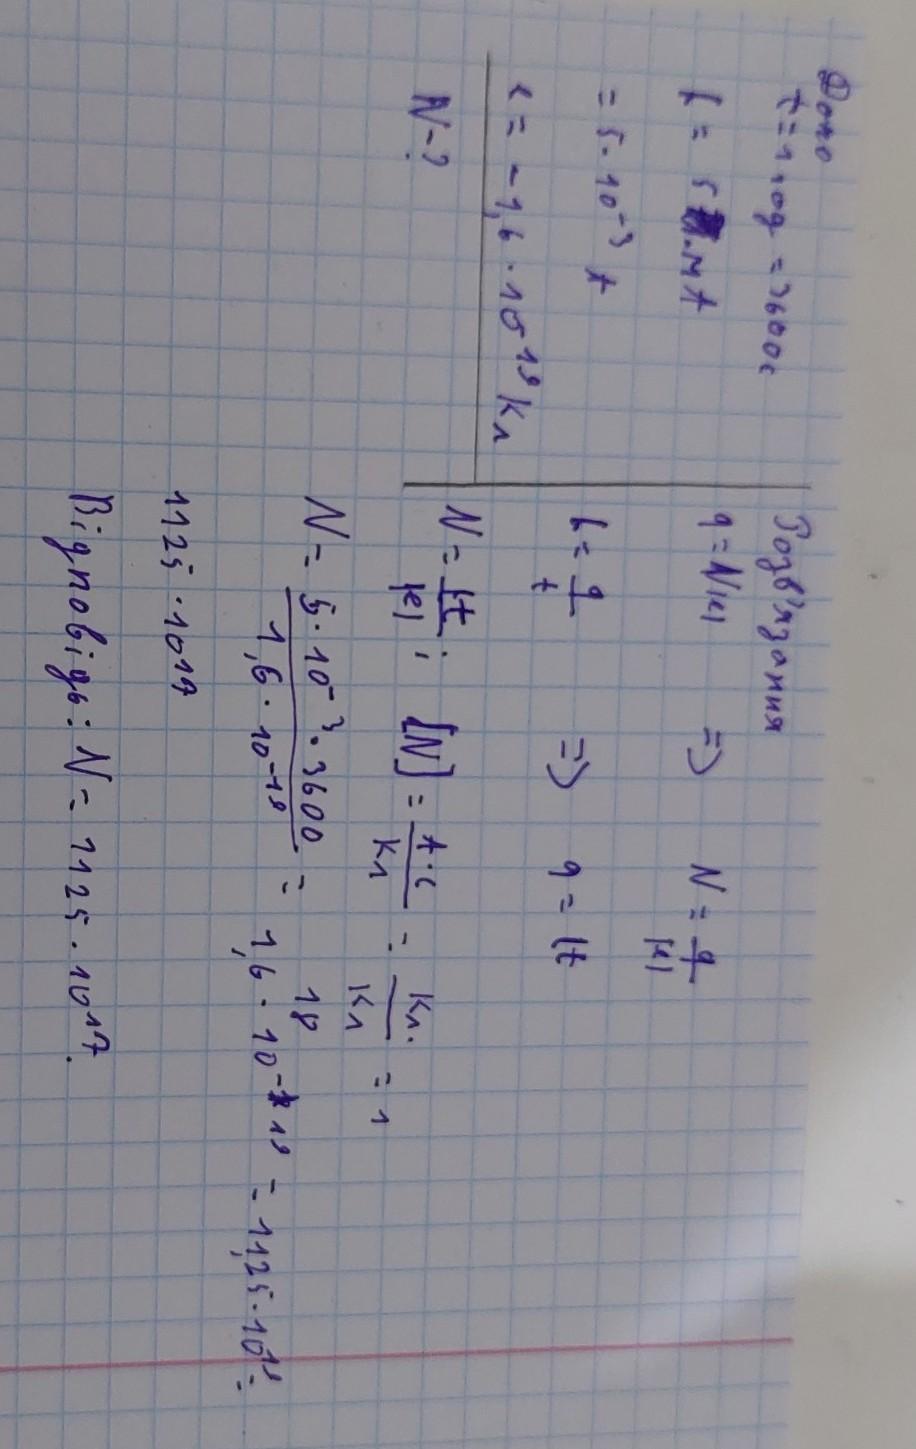 Дано
t = 1 год = 3600 с
I = 5 мА
= 5 · 10⁻³ А
e = -1,6 · 10⁻¹⁹ Кл
N - ?
Розв'язання
q = N|e| => N = q/|e|
I = q/t => q = It
N = It/|e| ; [N] = А·с/Кл = Кл/Кл = 1
N = 5 · 10⁻³ · 3600 / 1,6 · 10⁻¹⁹ = 18 / 1,6 · 10⁻¹⁹ = 11,25 · 10¹⁹ =
1125 · 10¹⁷
Відповідь: N = 1125 · 10¹⁷.